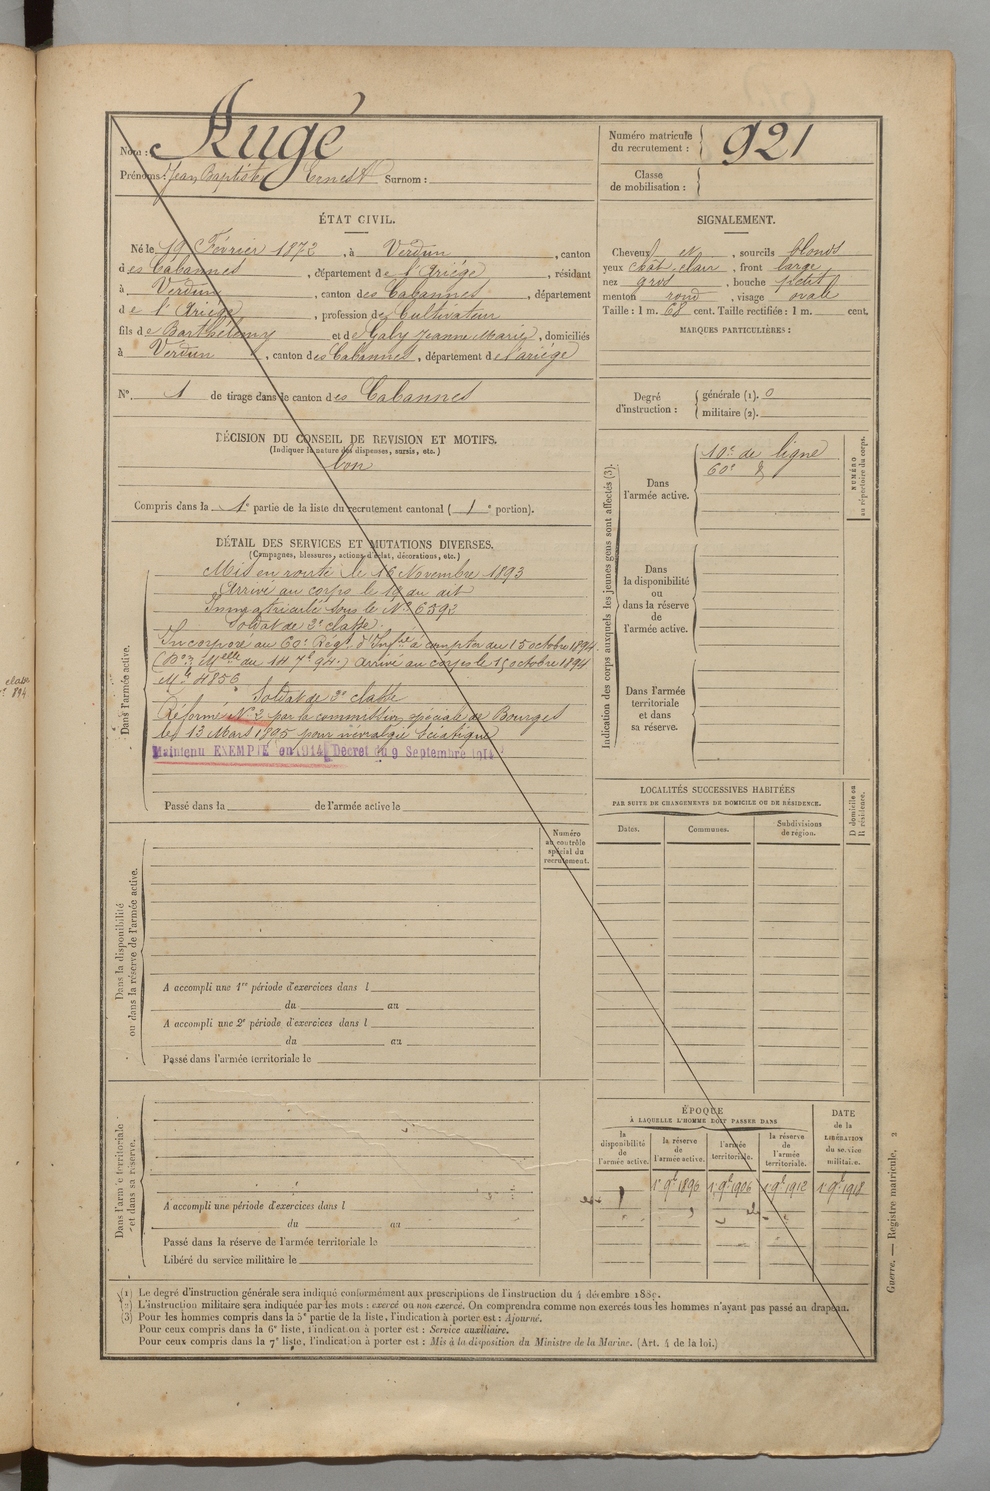 Nom : Augé
Prénoms : Jean Baptiste Ernest Surnom :
Numéro matricule du recrutement : 921
Classe de mobilisation :
ÉTAT CIVIL.
Né le 19 Février 1872, à Verdun, canton
des Cabannes, département de l'Ariège, résidant
à Verdun, canton des Cabannes, département
de l'Ariège, profession de Cultivateur
fils de Barthélemy et de Gaby Jeanne Marie, domiciliés
à Verdun, canton des Cabannes, département de l'ariège
N° 1 de tirage dans le canton des Cabannes
SIGNALEMENT.
Cheveux et, sourcils blonds
yeux chât. clair, front large
nez gros, bouche petite
menton rond, visage ovale
Taille : 1 m. 68 cent. Taille rectifiée : 1 m. cent.
MARQUES PARTICULIÈRES :
Degré d'instruction : générale (1). 0
militaire (2).
DÉCISION DU CONSEIL DE REVISION ET MOTIFS.
(Indiquer la nature des dispenses, sursis, etc.)
bon
Compris dans la 1e partie de la liste du recrutement cantonal ( 1e portion).
DÉTAIL DES SERVICES ET MUTATIONS DIVERSES.
(Campagnes, blessures, actions d'éclat, décorations, etc.)
Dans l'armée active.
Mis en route le 16 Novembre 1893
Arrivé au corps le 18 du dit
Immatriculé sous le N° 6392
Soldat de 2e classe.
Incorporé au 60e Régt. d'Infrie à compter du 15 octobre 1894.
(Don Melle du 14 7e 94.) arrivé au corps le 15 octobre 1894
Mle 4856
Soldat de 2e classe
Réformé N° 2 par la commission spéciale de Bourges
le 13 Mars 1895 pour névralgie sciatique
Maintenu EXEMPTÉ en 1914 Décret du 9 Septembre 1914
Passé dans la de l'armée active le
Indication des corps auxquels les jeunes gens sont affectés (3).
NUMÉRO au répertoire du corps.
Dans l'armée active.
10e de ligne
60e d
Dans la disponibilité ou dans la réserve de l'armée active.
Dans l'armée territoriale et dans sa réserve.
LOCALITÉS SUCCESSIVES HABITÉES
PAR SUITE DE CHANGEMENTS DE DOMICILE OU DE RÉSIDENCE.
Dates. Communes. Subdivisions de région.
D domicile ou R résidence.
Numéro au contrôle spécial du recrutement.
Dans la disponibilité ou dans la réserve de l'armée active.
A accompli une 1re période d'exercices dans l
du au
A accompli une 2e période d'exercices dans l
du au
Passé dans l'armée territoriale le
Dans l'armée territoriale et dans sa réserve.
A accompli une période d'exercices dans l
du au
Passé dans la réserve de l'armée territoriale le
Libéré du service militaire le
ÉPOQUE
À LAQUELLE L'HOMME DOIT PASSER DANS
la disponibilité de l'armée active.
la réserve de l'armée active.
l'armée territoriale.
la réserve de l'armée territoriale.
DATE de la LIBÉRATION du service militaire.
1r 9e 1896 1r 9e 1906 1r 9e 1912 1r 9e 1918
(1) Le degré d'instruction générale sera indiqué conformément aux prescriptions de l'instruction du 4 décembre 1889.
(2) L'instruction militaire sera indiquée par les mots : exercé ou non exercé. On comprendra comme non exercés tous les hommes n'ayant pas passé au drapeau.
(3) Pour les hommes compris dans la 5e partie de la liste, l'indication à porter est : Ajourné.
Pour ceux compris dans la 6e liste, l'indication à porter est : Service auxiliaire.
Pour ceux compris dans la 7e liste, l'indication à porter est : Mis à la disposition du Ministre de la Marine. (Art. 4 de la loi.)
Guerre. — Registre matricule. 2
classe
894